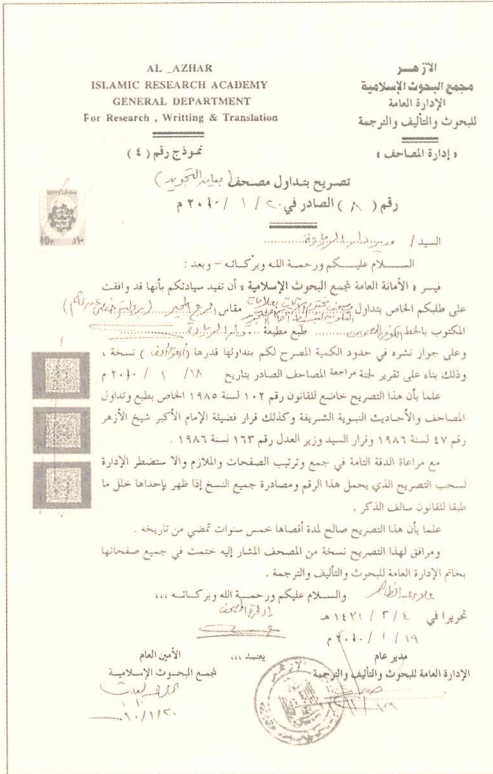 AL _AZHAR
ISLAMIC RESEARCH ACADEMY
GENERAL DEPARTMENT
For Research , Writting & Translation
الأزهـــر
مجمع البحوث الإسلامية
الإدارة العامة
للبحوث والتأليف والترجمة
« إدارة المصاحف »
نموذج رقم ( ٤ )
تصريح بتداول مصحف
رقم ( ٨ ) الصادر في ٢٠ / ١ / ٢٠١٠ م
السيد /
السلام عليـــكم ورحمـة اللـه وبركاتـه - وبعد :
فيسر « الأمانة العامة لمجمع البحوث الإسلامية » أن تفيد سيادتكم بأنها قد وافقت
على طلبكم الخاص بتداول مقاس
المكتوب بالخط طبع مطبعة
وعلى جواز نشره في حدود الكمية المصرح لكم بتداولها قدرها نسخة ،
وذلك بناء على تقرير لجنة مراجعة المصاحف الصادر بتاريخ ١٨ / ١ / ٢٠١٠ م
علما بأن هذا التصريح خاضع للقانون رقم ١٠٢ لسنة ١٩٨٥ الخاص بطبع وتداول
المصاحف والأحاديث النبوية الشريفة وكذلك قرار فضيلة الإمام الأكبر شيخ الأزهر
رقم ٤٧ لسنة ١٩٨٦ وقرار السيد وزير العدل رقم ١٦٣ لسنة ١٩٨٦ .
مع مراعاة الدقة التامة في جمع وترتيب الصفحات والملازم والا ستضطر الإدارة
لسحب التصريح الذي يحمل هذا الرقم ومصادرة جميع النسخ إذا ظهر بإحداها خلل ما
طبقا للقانون سالف الذكر .
علما بأن هذا التصريح صالح لمدة أقصاها خمس سنوات تمضي من تاريخه .
ومرافق لهذا التصريح نسخة من المصحف المشار إليه ختمت في جميع صفحاتها
بخاتم الإدارة العامة للبحوث والتأليف والترجمة .
والسـلام عليكم ورحمـة اللـه وبركاتـه ،،،
تحريرا في ٤ / ٢ / ١٤٣١ هـ
١٩ / ١ / ٢٠١٠ م
مدير عام
الإدارة العامة للبحوث والتأليف والترجمة
يعتمد ،،،
الأمين العام
لمجمع البحـوث الإسلاميـة